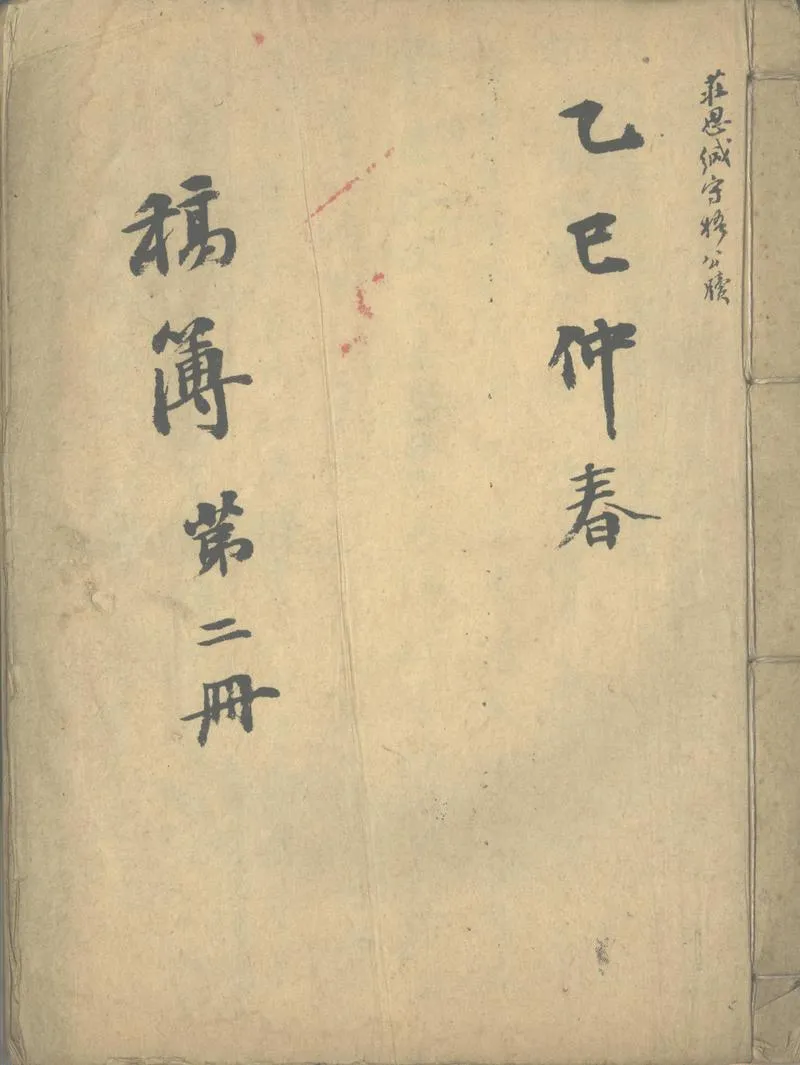 莊思緘守梧公牘
乙巳仲春
稿簿 第二冊